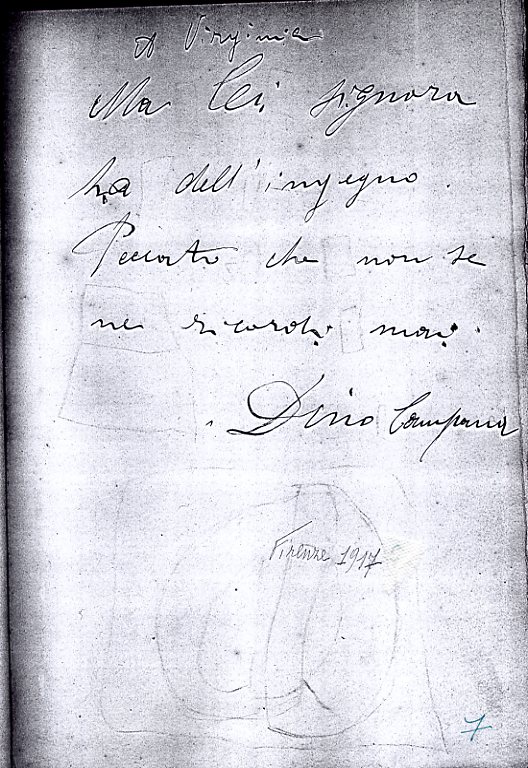 A Virginia
Ma lei, signora
ha dell'ingegno.
Peccato che non se
ne ricordi mai.
Dino Campana
Firenze 1917
7